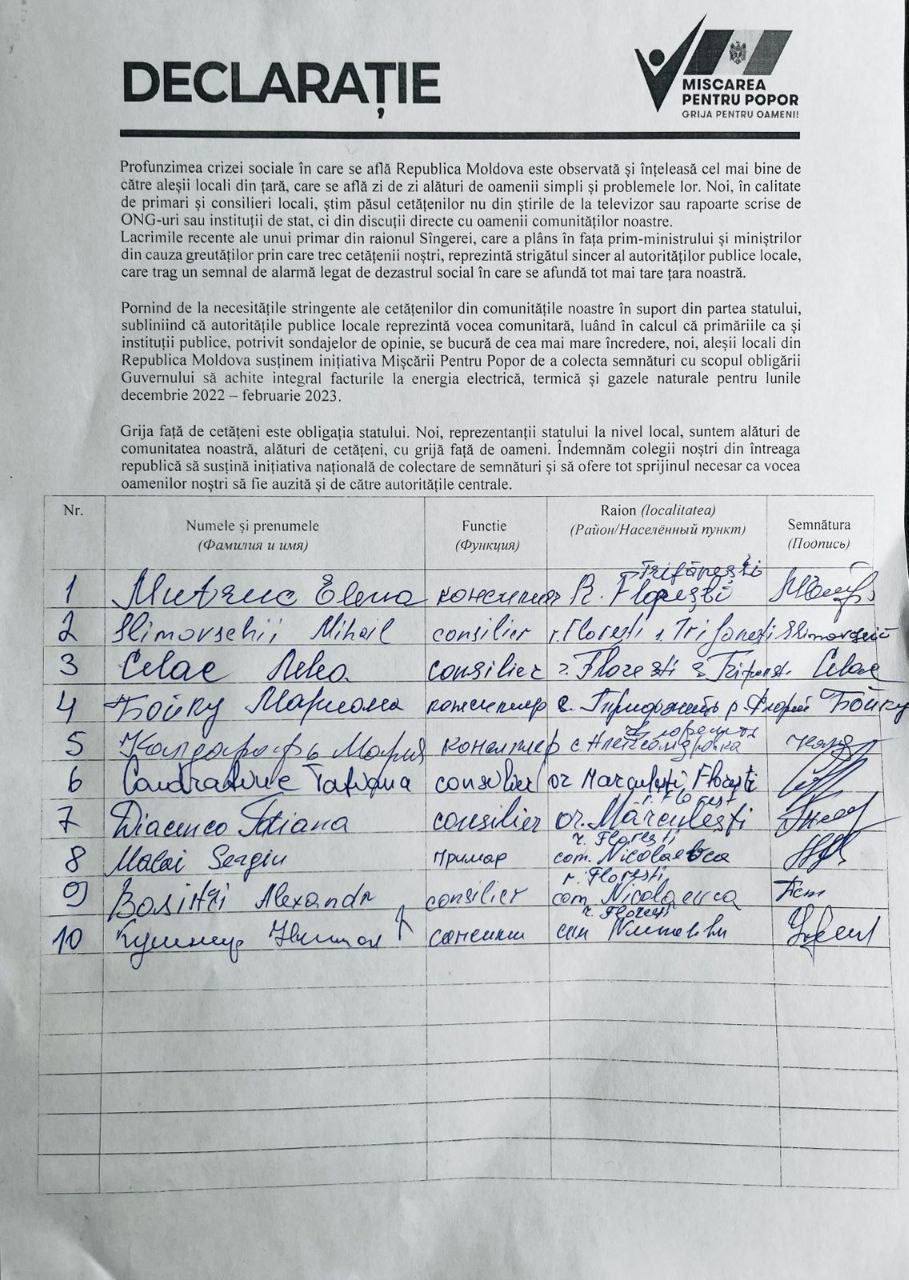 DECLARAȚIE
MISCAREA
PENTRU POPOR
GRIJA PENTRU OAMENI!
Profunzimea crizei sociale în care se află Republica Moldova este observată și înțeleasă cel mai bine de
către aleșii locali din țară, care se află zi de zi alături de oamenii simpli și problemele lor. Noi, în calitate
de primari și consilieri locali, știm păsul cetățenilor nu din știrile de la televizor sau rapoarte scrise de
ONG-uri sau instituții de stat, ci din discuții directe cu oamenii comunităților noastre.
Lacrimile recente ale unui primar din raionul Sîngerei, care a plâns în fața prim-ministrului și miniștrilor
din cauza greutăților prin care trec cetățenii noștri, reprezintă strigătul sincer al autorităților publice locale,
care trag un semnal de alarmă legat de dezastrul social în care se afundă tot mai tare țara noastră.
Pornind de la necesitățile stringente ale cetățenilor din comunitățile noastre în suport din partea statului,
subliniind că autoritățile publice locale reprezintă vocea comunitară, luând în calcul că primăriile ca și
instituții publice, potrivit sondajelor de opinie, se bucură de cea mai mare încredere, noi, aleșii locali din
Republica Moldova susținem inițiativa Mișcării Pentru Popor de a colecta semnături cu scopul obligării
Guvernului să achite integral facturile la energia electrică, termică și gazele naturale pentru lunile
decembrie 2022 – februarie 2023.
Grija față de cetățeni este obligația statului. Noi, reprezentanții statului la nivel local, suntem alături de
comunitatea noastră, alături de cetățeni, cu grijă față de oameni. Îndemnăm colegii noștri din întreaga
republică să susțină inițiativa națională de colectare de semnături și să ofere tot sprijinul necesar ca vocea
oamenilor noștri să fie auzită și de către autoritățile centrale.
Nr. Numele și prenumele Functie Raion (localitatea) Semnătura
(Фамилия и имя) (Функция) (Район/Населённый пункт) (Подпись)
Trifănești
1 Elena R. Florești
2 Slimovschii Mihail consilier r. Florești s. Trifonești Slimovschii
3 Celac consilier r. Florești Celac
4 Бойку Мариана Бойку
5 Мария
6 Tatiana consilier or Marculești Florești
r. Florești
7 Diacenco Tatiana consilier or. Mărculești
r. Florești
8 Malai Sergiu Примар com. Nicolaevca
r. Florești
9 Alexandr consilier com. Nicolaevca
r. Florești
10